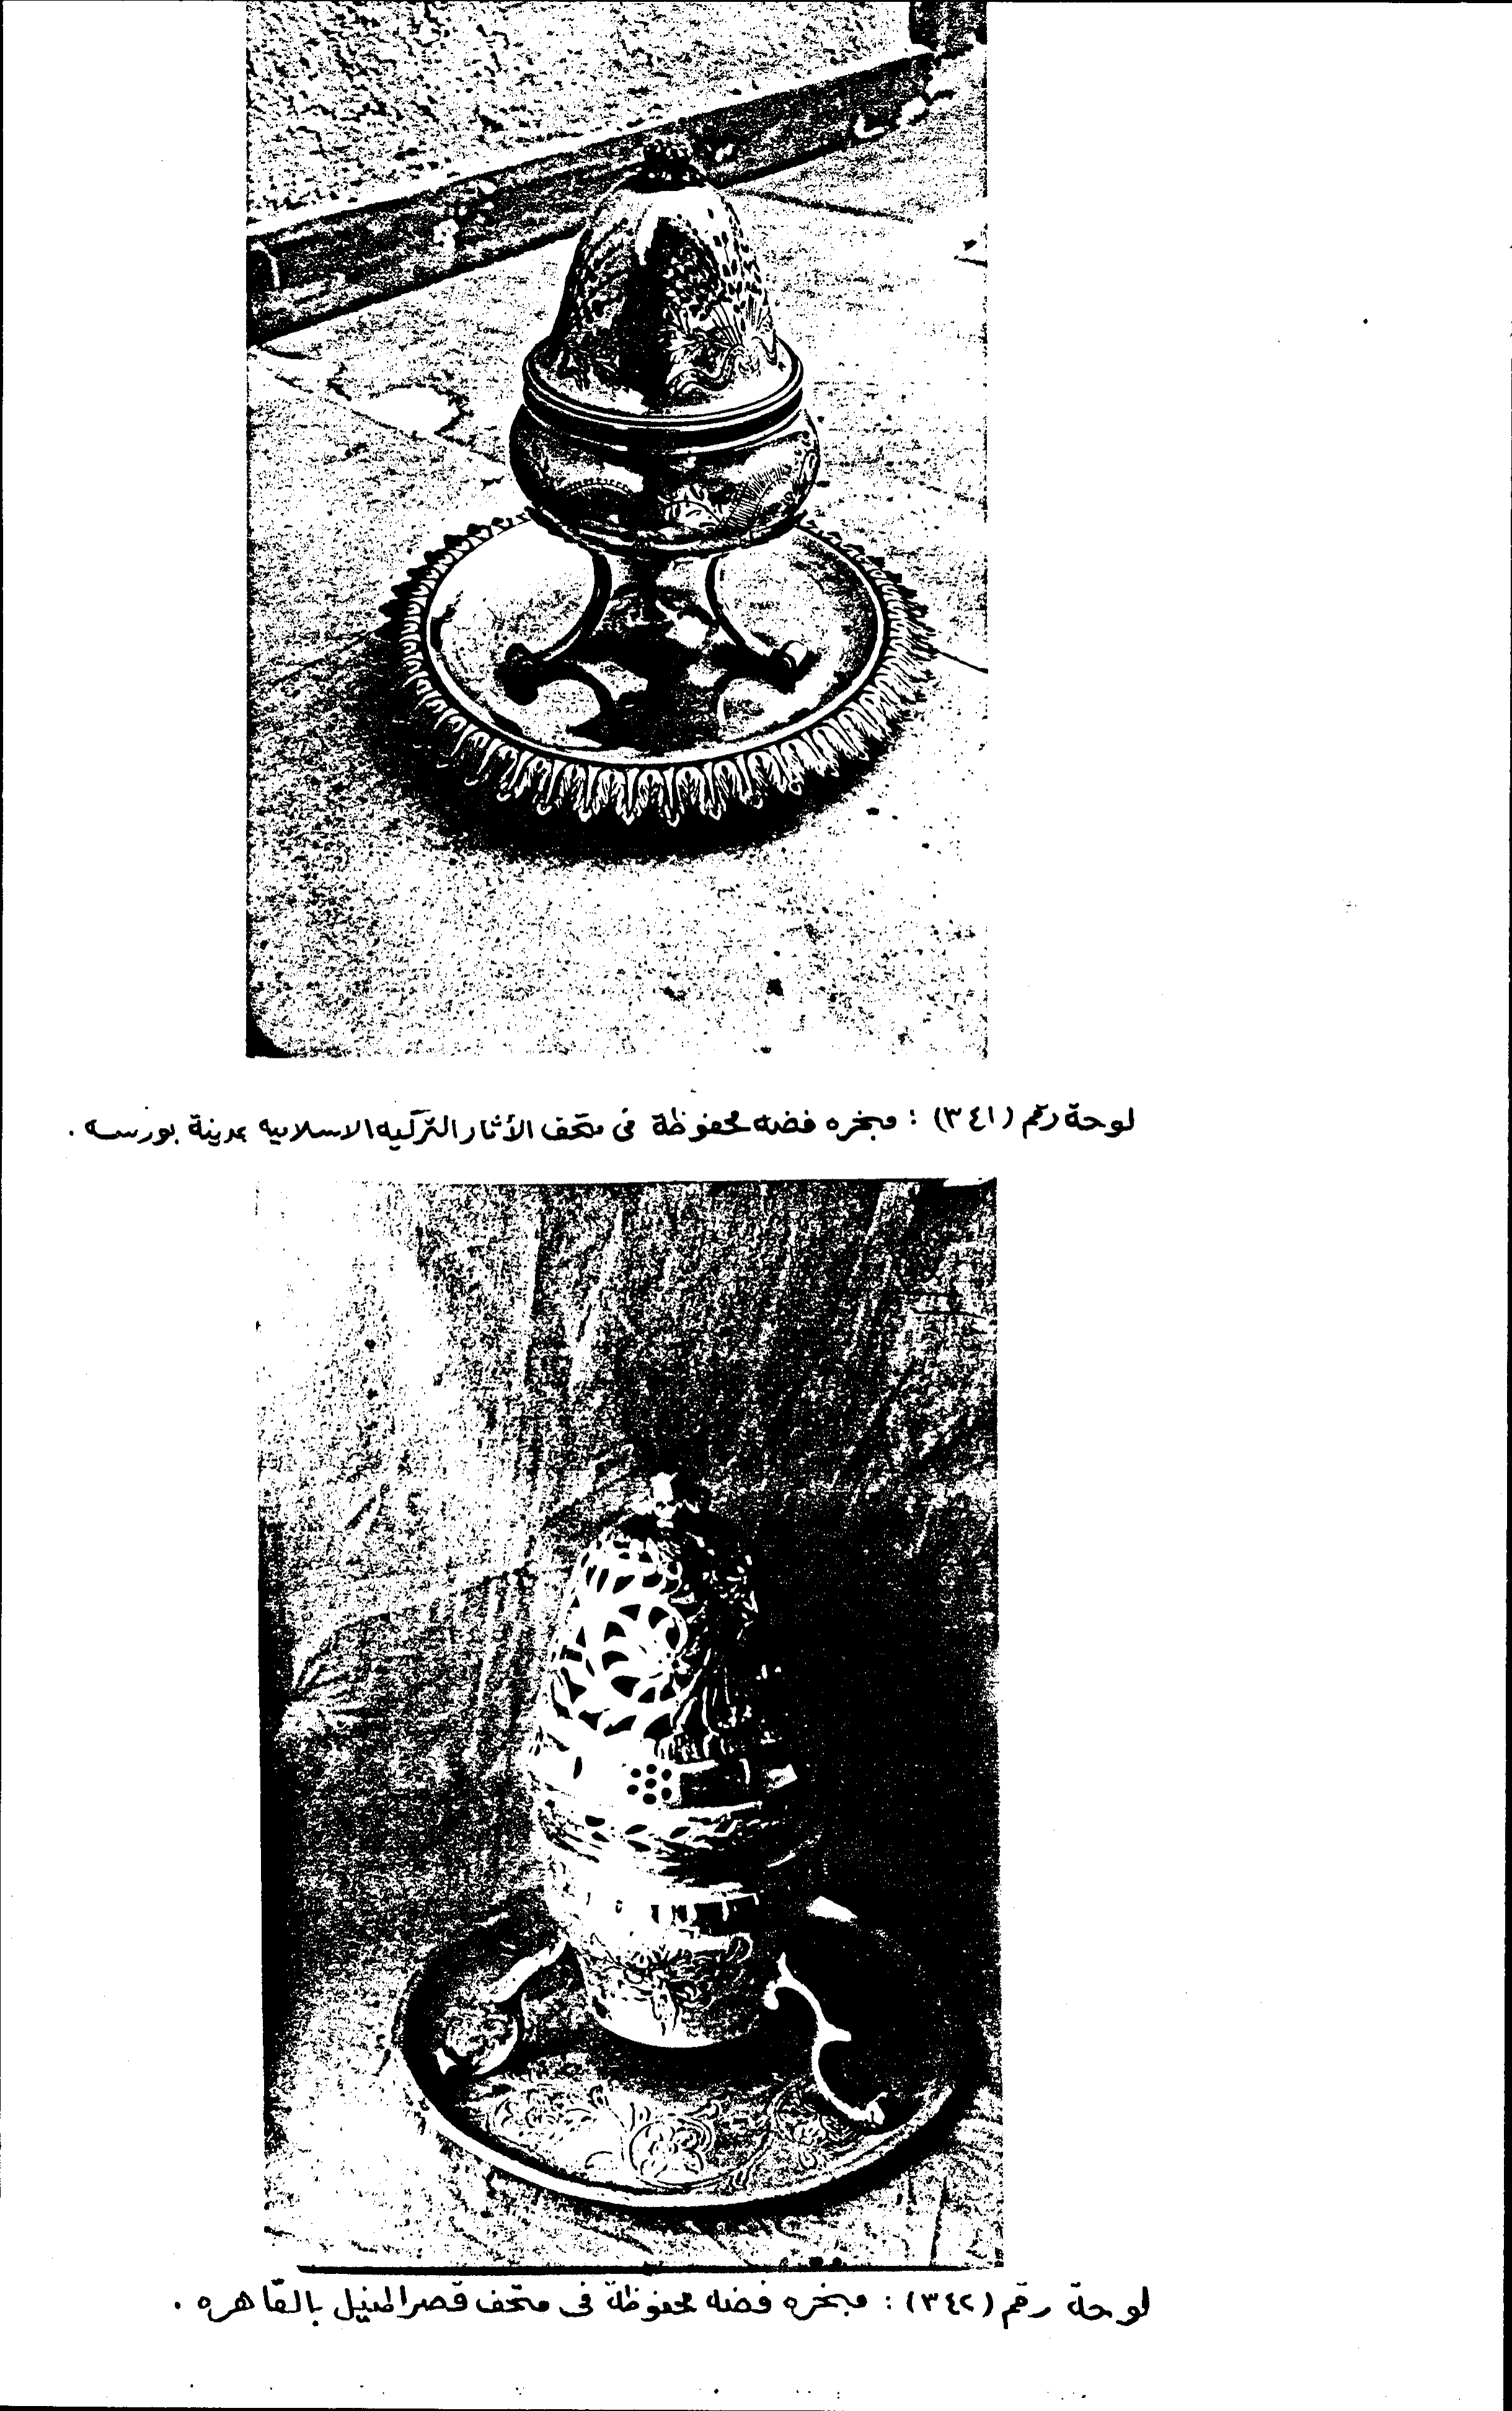 لوحة رقم (٣٤١) : مبخره فضه محفوظة فى متحف الأثار التركيه الاسلاميه بمدينة بورسه .
لوحة رقم (٣٤٢) : مبخره فضه محفوظة فى متحف قصر المنيل بالقاهره .